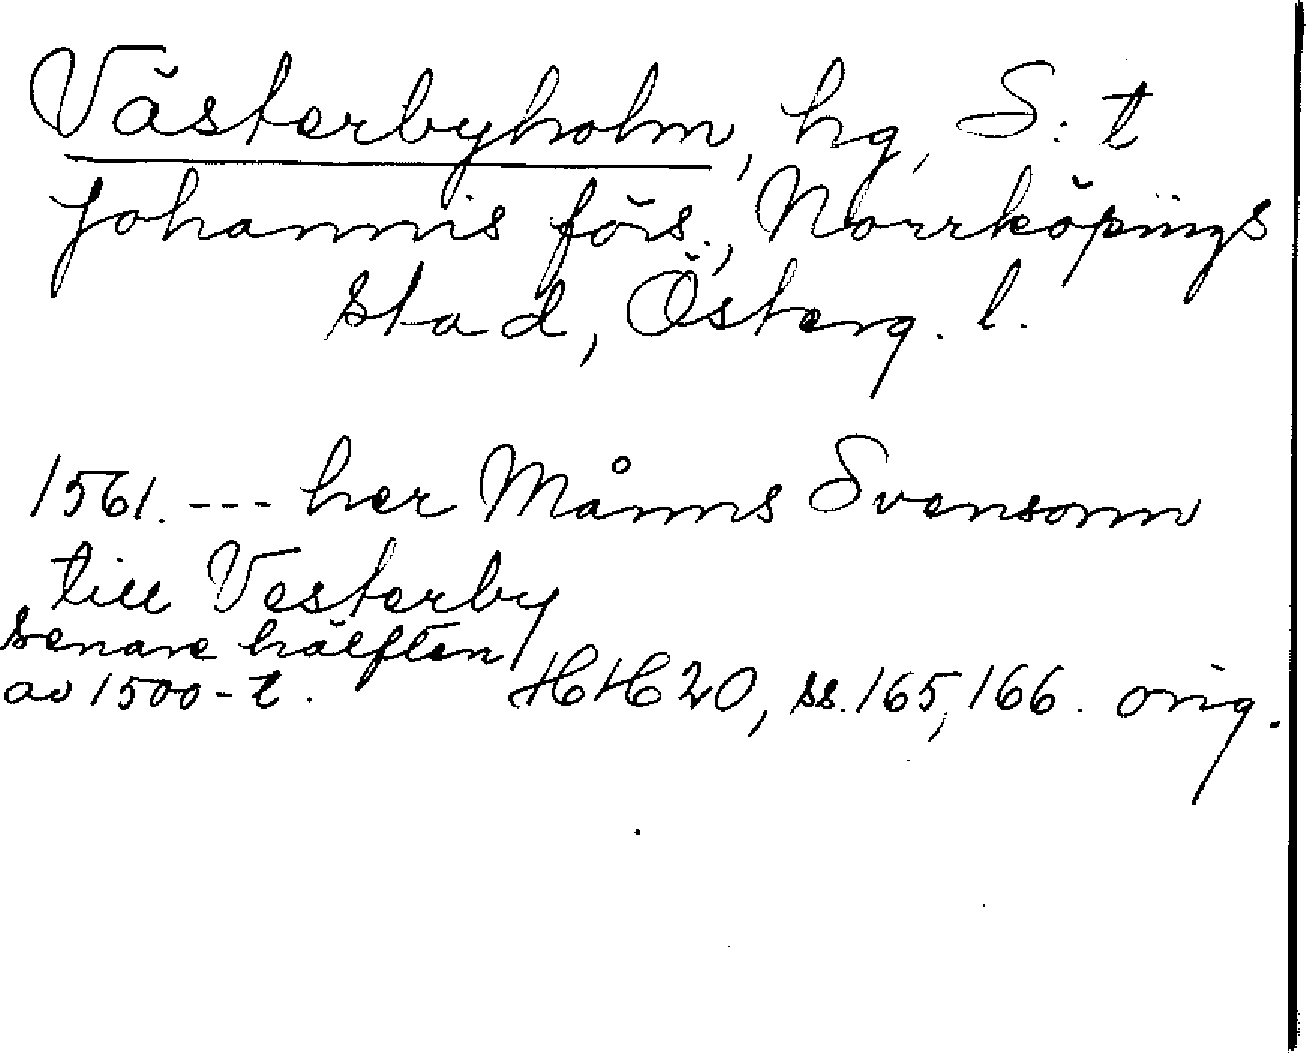 Västerbyholm, hg, S:t
Johannis förs., Norrköpings
stad, Österg. l.
1561. --- her Månns Svensonn
till Vesterby
senare hälften
av 1500-t. HH 20, ss. 165, 166. orig.